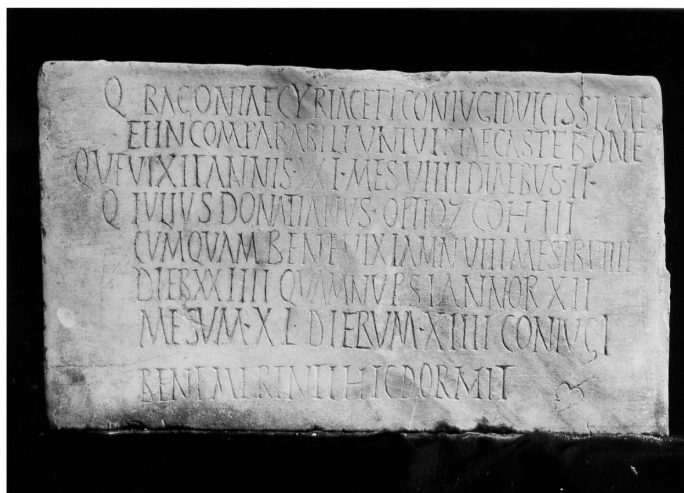 Q RAGONIAE CYRIACETI CONIUGI DUICISSIME
ET INCOMPARABILI UNIVIRIAE CASTE BONE
QUE VIXIT ANNIS · XXI · MES VIIII DIAEBUS · II ·
Q IULIUS DONATIANUS · OPTIO 7 COH III
CUM QUAM BENE VIXI AMN VIIII MESIBV IIII
DIEB XXIIII QUAM NUPSI ANNOR XII
MESUM · XI · DIERUM · XIIII CONIUGI
BENEMERENTI HIC DORMIT